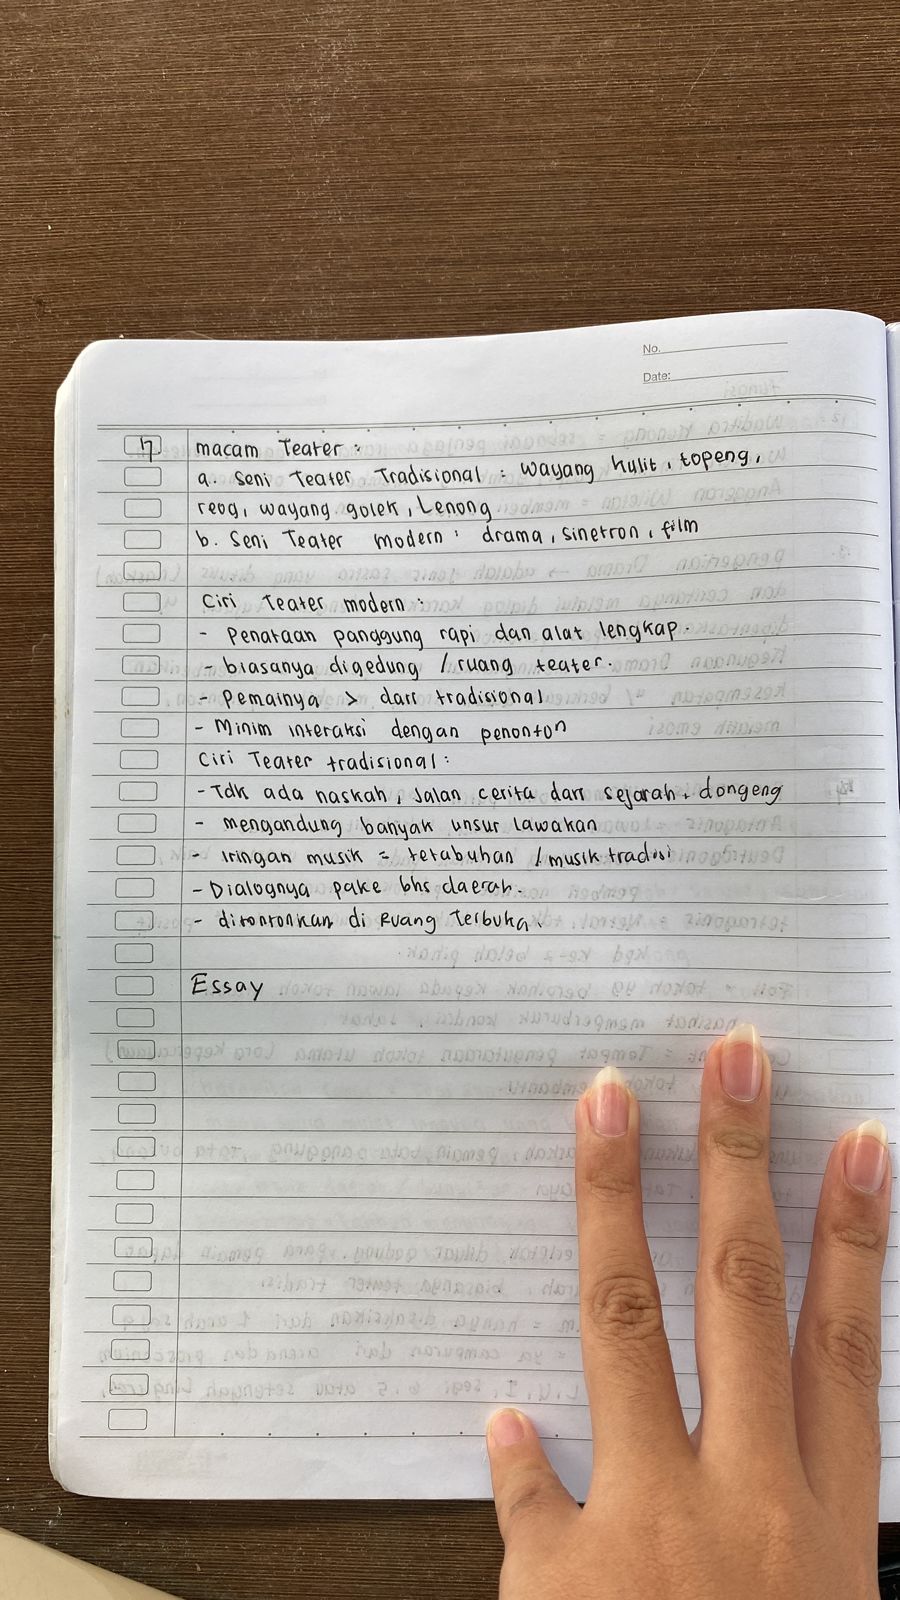 No.
Date:
17 macam Teater :
a. Seni Teater Tradisional : wayang kulit, topeng,
reog, wayang golek, Lenong
b. Seni Teater modern : drama, sinetron, film
Ciri Teater modern :
- Penataan panggung rapi dan alat lengkap.
- biasanya digedung / ruang teater.
- Pemainya > dari tradisional
- Minim interaksi dengan penonton
Ciri Teater tradisional :
- Tdk ada naskah, Jalan cerita dari sejarah, dongeng
- mengandung banyak unsur lawakan
- Iringan musik = tetabuhan / musik tradisi
- Dialognya pake bhs daerah.
- ditontonkan di Ruang Terbuka.
Essay